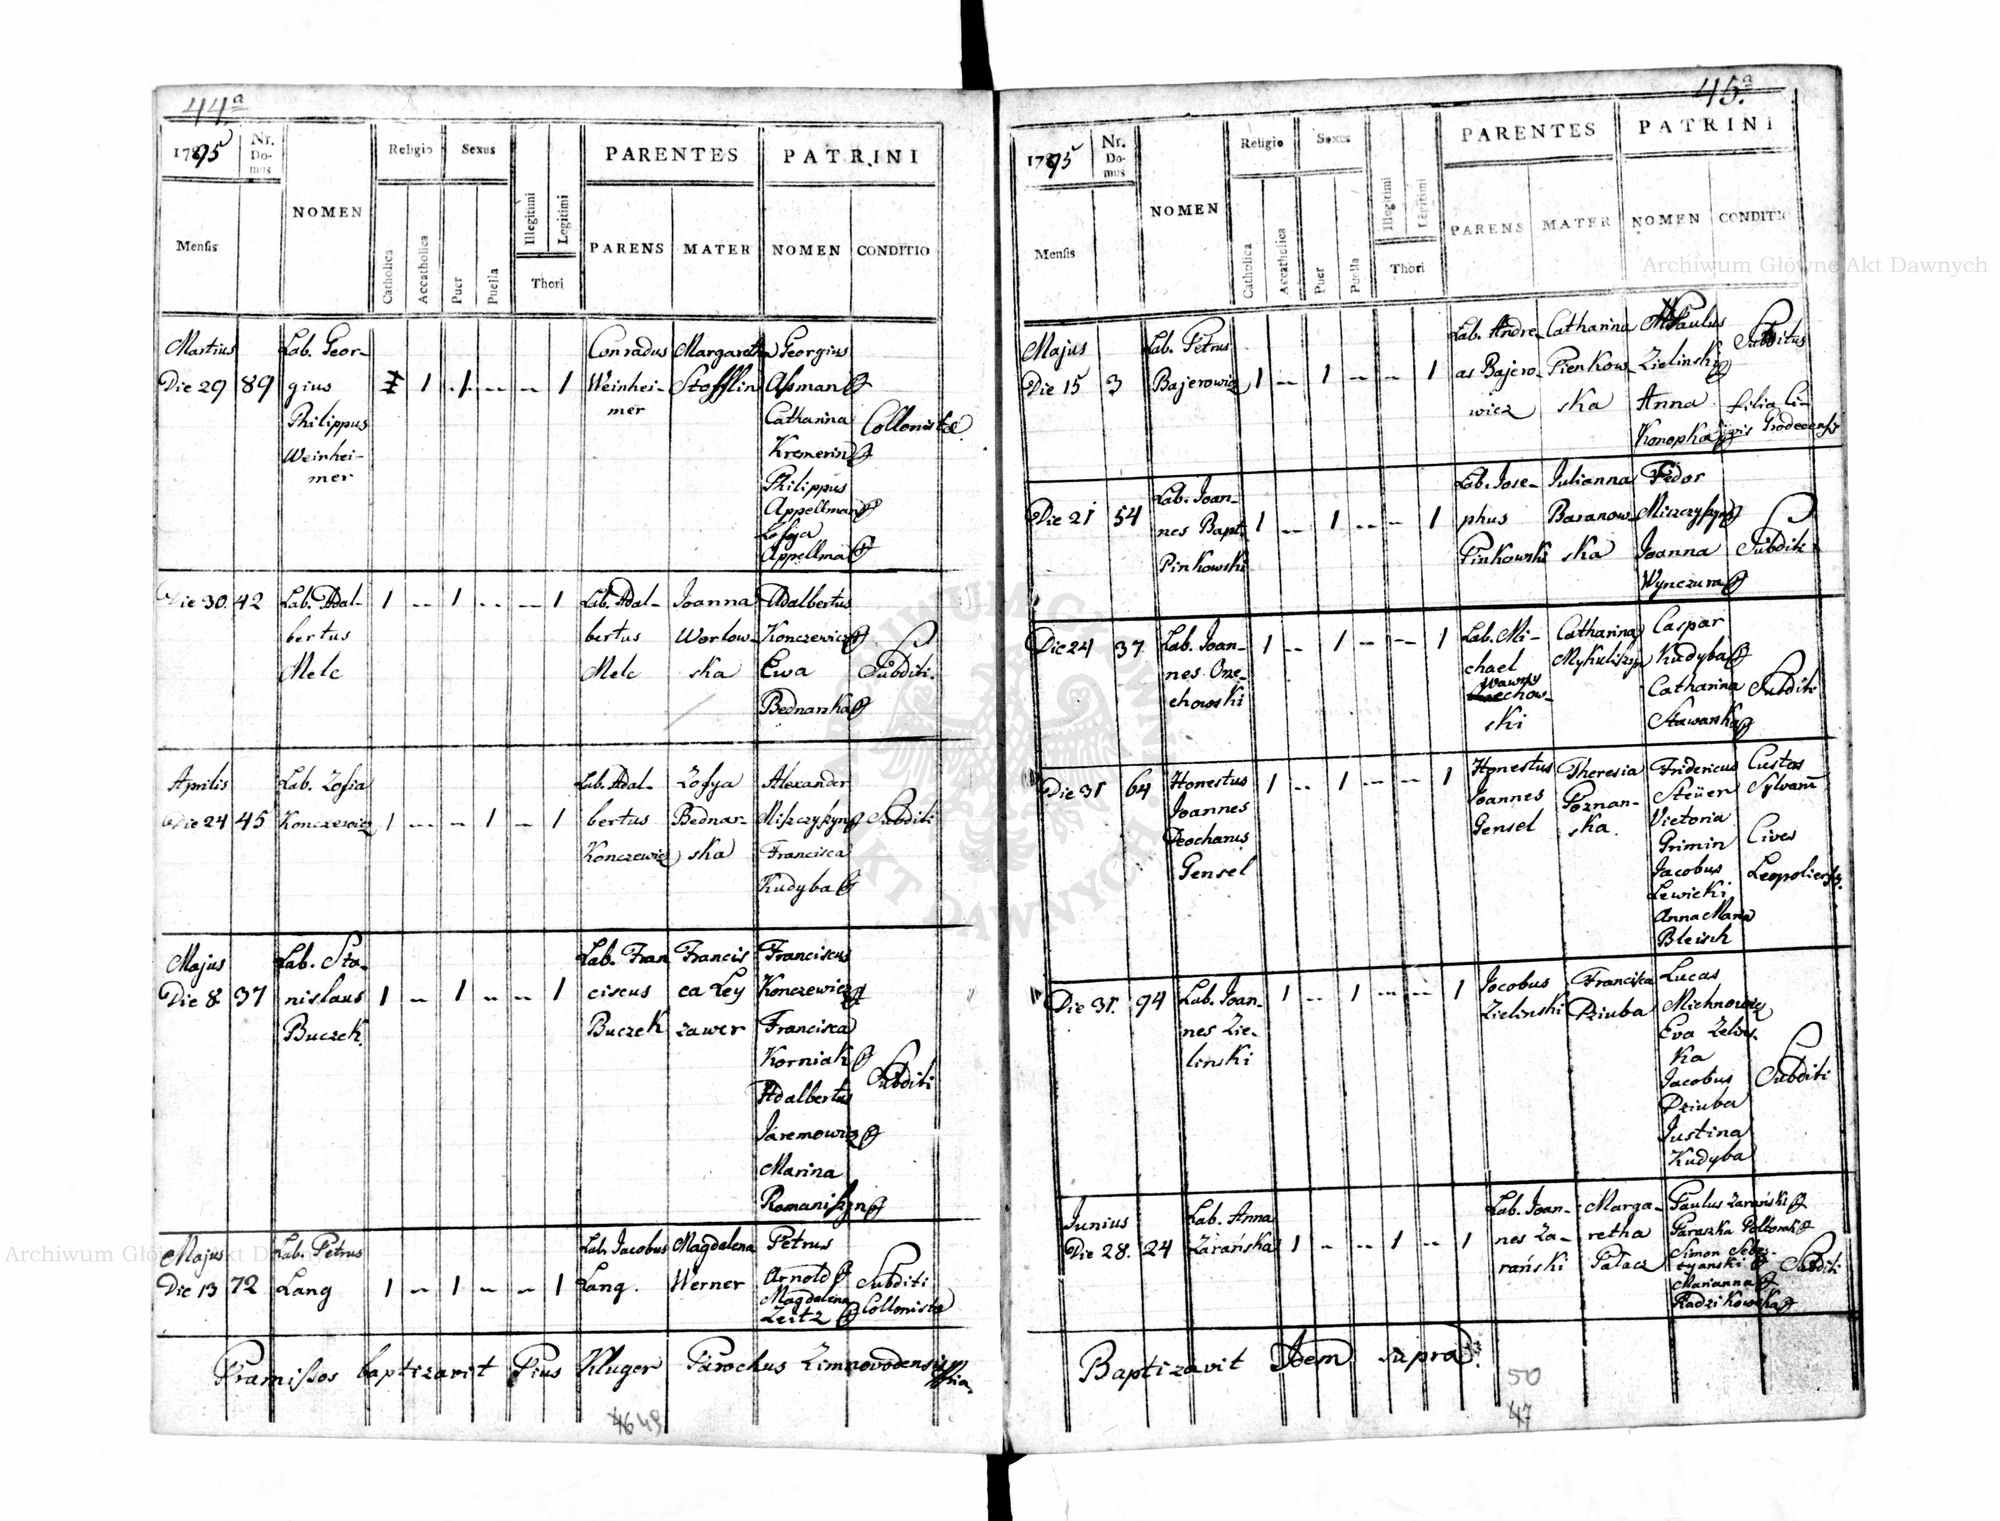 44.a
1795
Nr. Domus
NOMEN
Religio
Sexus
Illegitimi
Legitimi
PARENTES
PATRINI
Mensis
Catholica
Accatholica
Puer
Puella
Thori
PARENS
MATER
NOMEN
CONDITIO
Martius
Die 29
89
Lab. Geor-
gius
Philippus
Weinhei-
mer
1 1 1 -- -- 1
Conradus
Weinhei-
mer
Margaretha
Stofflin
Georgius
Aßman
Catharina
Kremerin
Philippus
Appellman
Zofya
Appellma
Collonistae
Die 30. 42
Lab. Adal-
bertus
Melc
1 -- 1 -- -- 1
Lab. Adal-
bertus
Melc
Joanna
Worlow-
ska
Adalbertus
Konczewicz
Ewa
Bednarska
Subditi.
Aprilis
Die 24 45
Lab. Zofia
Konczewicz
1 -- -- 1 -- 1
Lab. Adal-
bertus
Konczewicz
Zofya
Bednar-
ska
Alexander
Miszczyszyn
Francisca
Kudyba
Subditi
Majus
Die 8. 37
Lab. Sta-
nislaus
Buczek.
1 -- 1 -- -- 1
Lab. Fran
ciscus
Buczek
Francis
ca Ley
zawer
Franciscus
Konczewicz
Francisca
Korniak
Adalbertus
Jaremowicz
Marina
Romaniszyn
Subditi
Majus
Die 13 72
Lab. Petrus
Lang
1 -- 1 -- -- 1
Lab. Jacobus
Lang.
Magdalena
Werner
Petrus
Arnold
Magdalena
Zeitz
Subditi
Collonista
Pramissos baptizavit Pius Kluger Parochus Zimnovodensis
46 49
45.a
1795
Nr. Domus
NOMEN
Religio
Sexus
Illegitimi
Legitimi
PARENTES
PATRINI
Mensis
Catholica
Accatholica
Puer
Puella
Thori
PARENS
MATER
NOMEN
CONDITIO
Majus
Die 15 3
Lab. Petrus
Bajerowicz
1 -- 1 -- -- 1
Lab. Andre
as Bajero-
wicz
Catharina
Pienkow-
ska
Paulus
Zielinski
Anna
Konopka
Subditus
filia Ci-
vis Grodecensis
Die 21 54
Lab. Joan-
nes Bapt.
Pinkowski
1 -- 1 -- -- 1
Lab. Jose-
phus
Pinkowski
Julianna
Baranow-
ska
Fedor
Miszczyszyn
Joanna
Wynczura
Subditi
Die 24 37
Lab. Joan-
nes Orze-
chowski
1 -- 1 -- -- 1
Lab. Mi-
chael
Wawrzy
chow-
ski
Catharina
Mykuliszyn
Caspar
Kudyba
Catharina
Stawarska
Subditi
Die 31 64
Honestus
Joannes
Deocharus
Gensel
1 -- 1 -- -- 1
Honestus
Joannes
Gensel
Theresia
Poznan-
ska.
Fridericus
Steüer
Victoria
Grimin
Jacobus
Lewicki
Anna Maria
Bleisch
Custos
Sylvarum
Cives
Leopolienses.
Die 31. 94
Lab. Joan-
nes Zie-
linski
1 -- 1 -- -- 1
Jocobus
Zielinski
Francisca
Dziuba
Lucas
Michnowicz
Eva Zelins-
ka
Jacobus
Dziuba
Justina
Kudyba
Subditi
Junius
Die 28. 24
Lab. Anna
Zarańska
1 -- -- 1 -- 1
Lab. Joan-
nes Za-
rański
Marga-
retha
Pałacz
Paulus Zarański
Paraszka Poltorak
Simon Sebes-
tyanski
Marianna
Radzikowska
Subditi
Baptizavit Idem supra.
50
47
Archiwum Główne Akt Dawnych
Archiwum Główne Akt Dawnych
ARCHIWUM GŁÓWNE AKT DAWNYCH